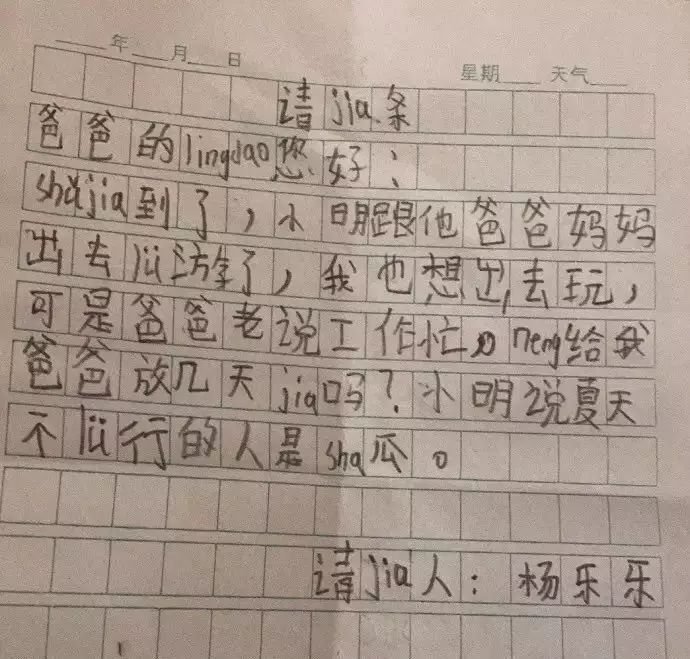 年 月 日 星期 天气
请jia条
爸爸的lingdao您好：
shǔjia到了，小明跟他爸爸妈妈
出去lü游了，我也想出去玩，
可是爸爸老说工作忙。neng给我
爸爸放几天jia吗？小明说夏天
不lü行的人是sha瓜。
请jia人：杨乐乐